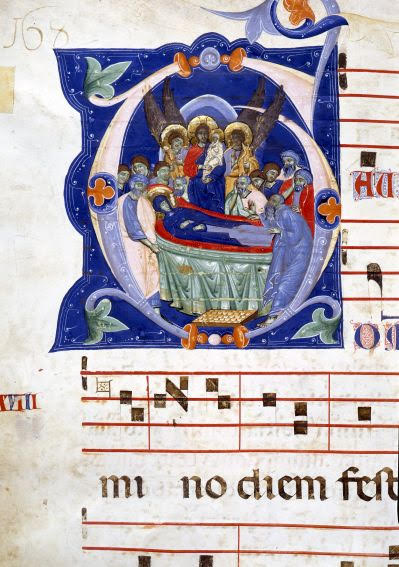 168
AU
O
mi no diem fest